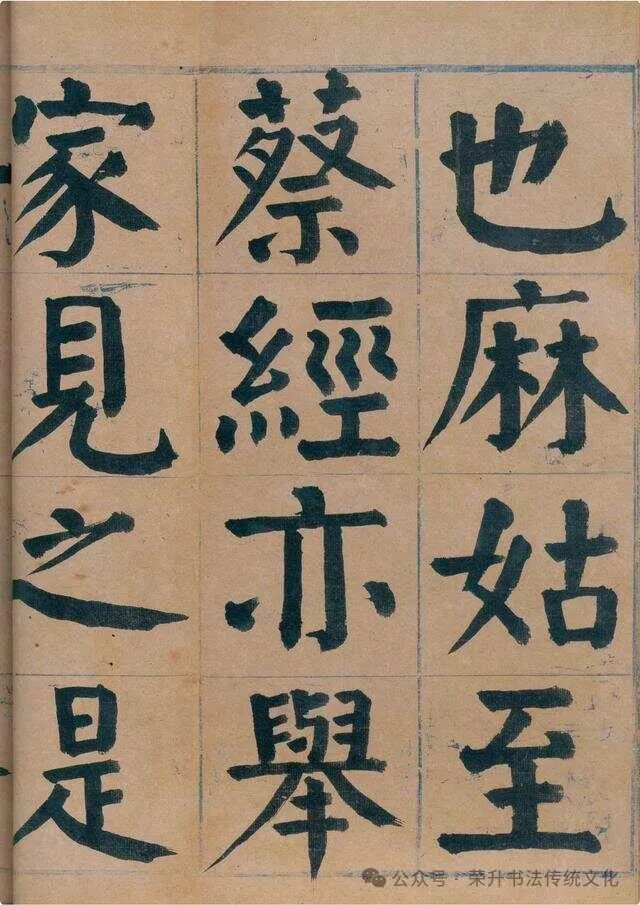 也麻姑至
蔡經亦舉
家見之是
公众号·荣升书法传统文化